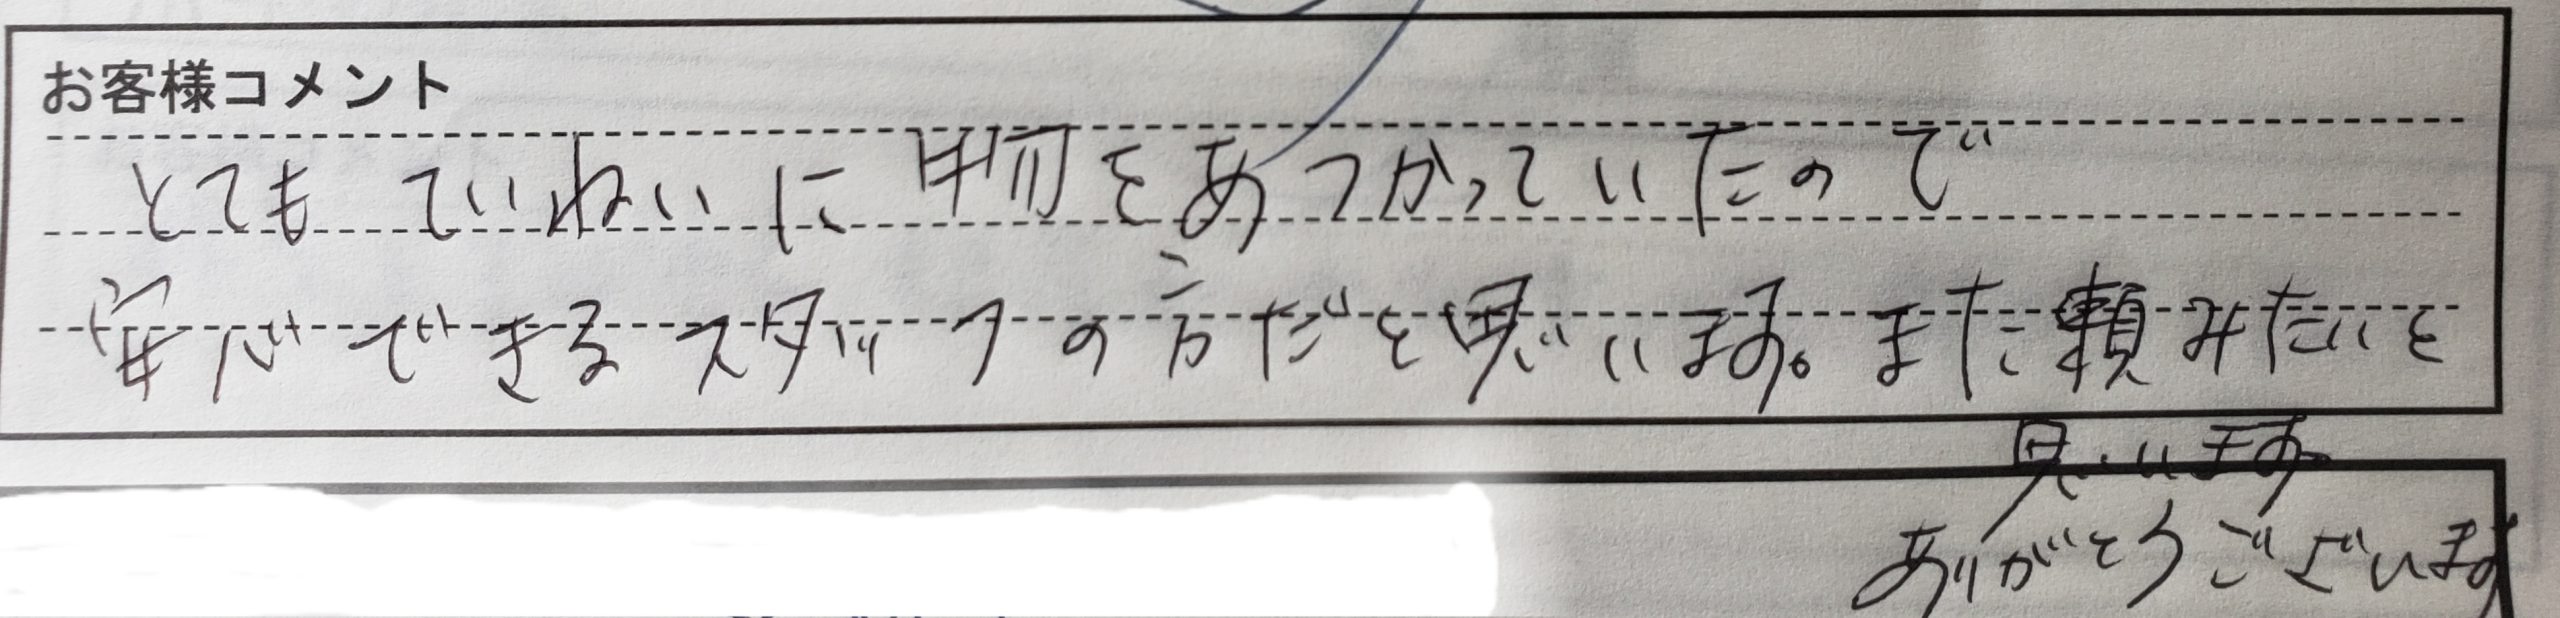 お客様コメント
とても ていねいに 物をあつかっていたので
安心できるスタッフの方だと思います。また頼みたいと
思います
ありがとうございます